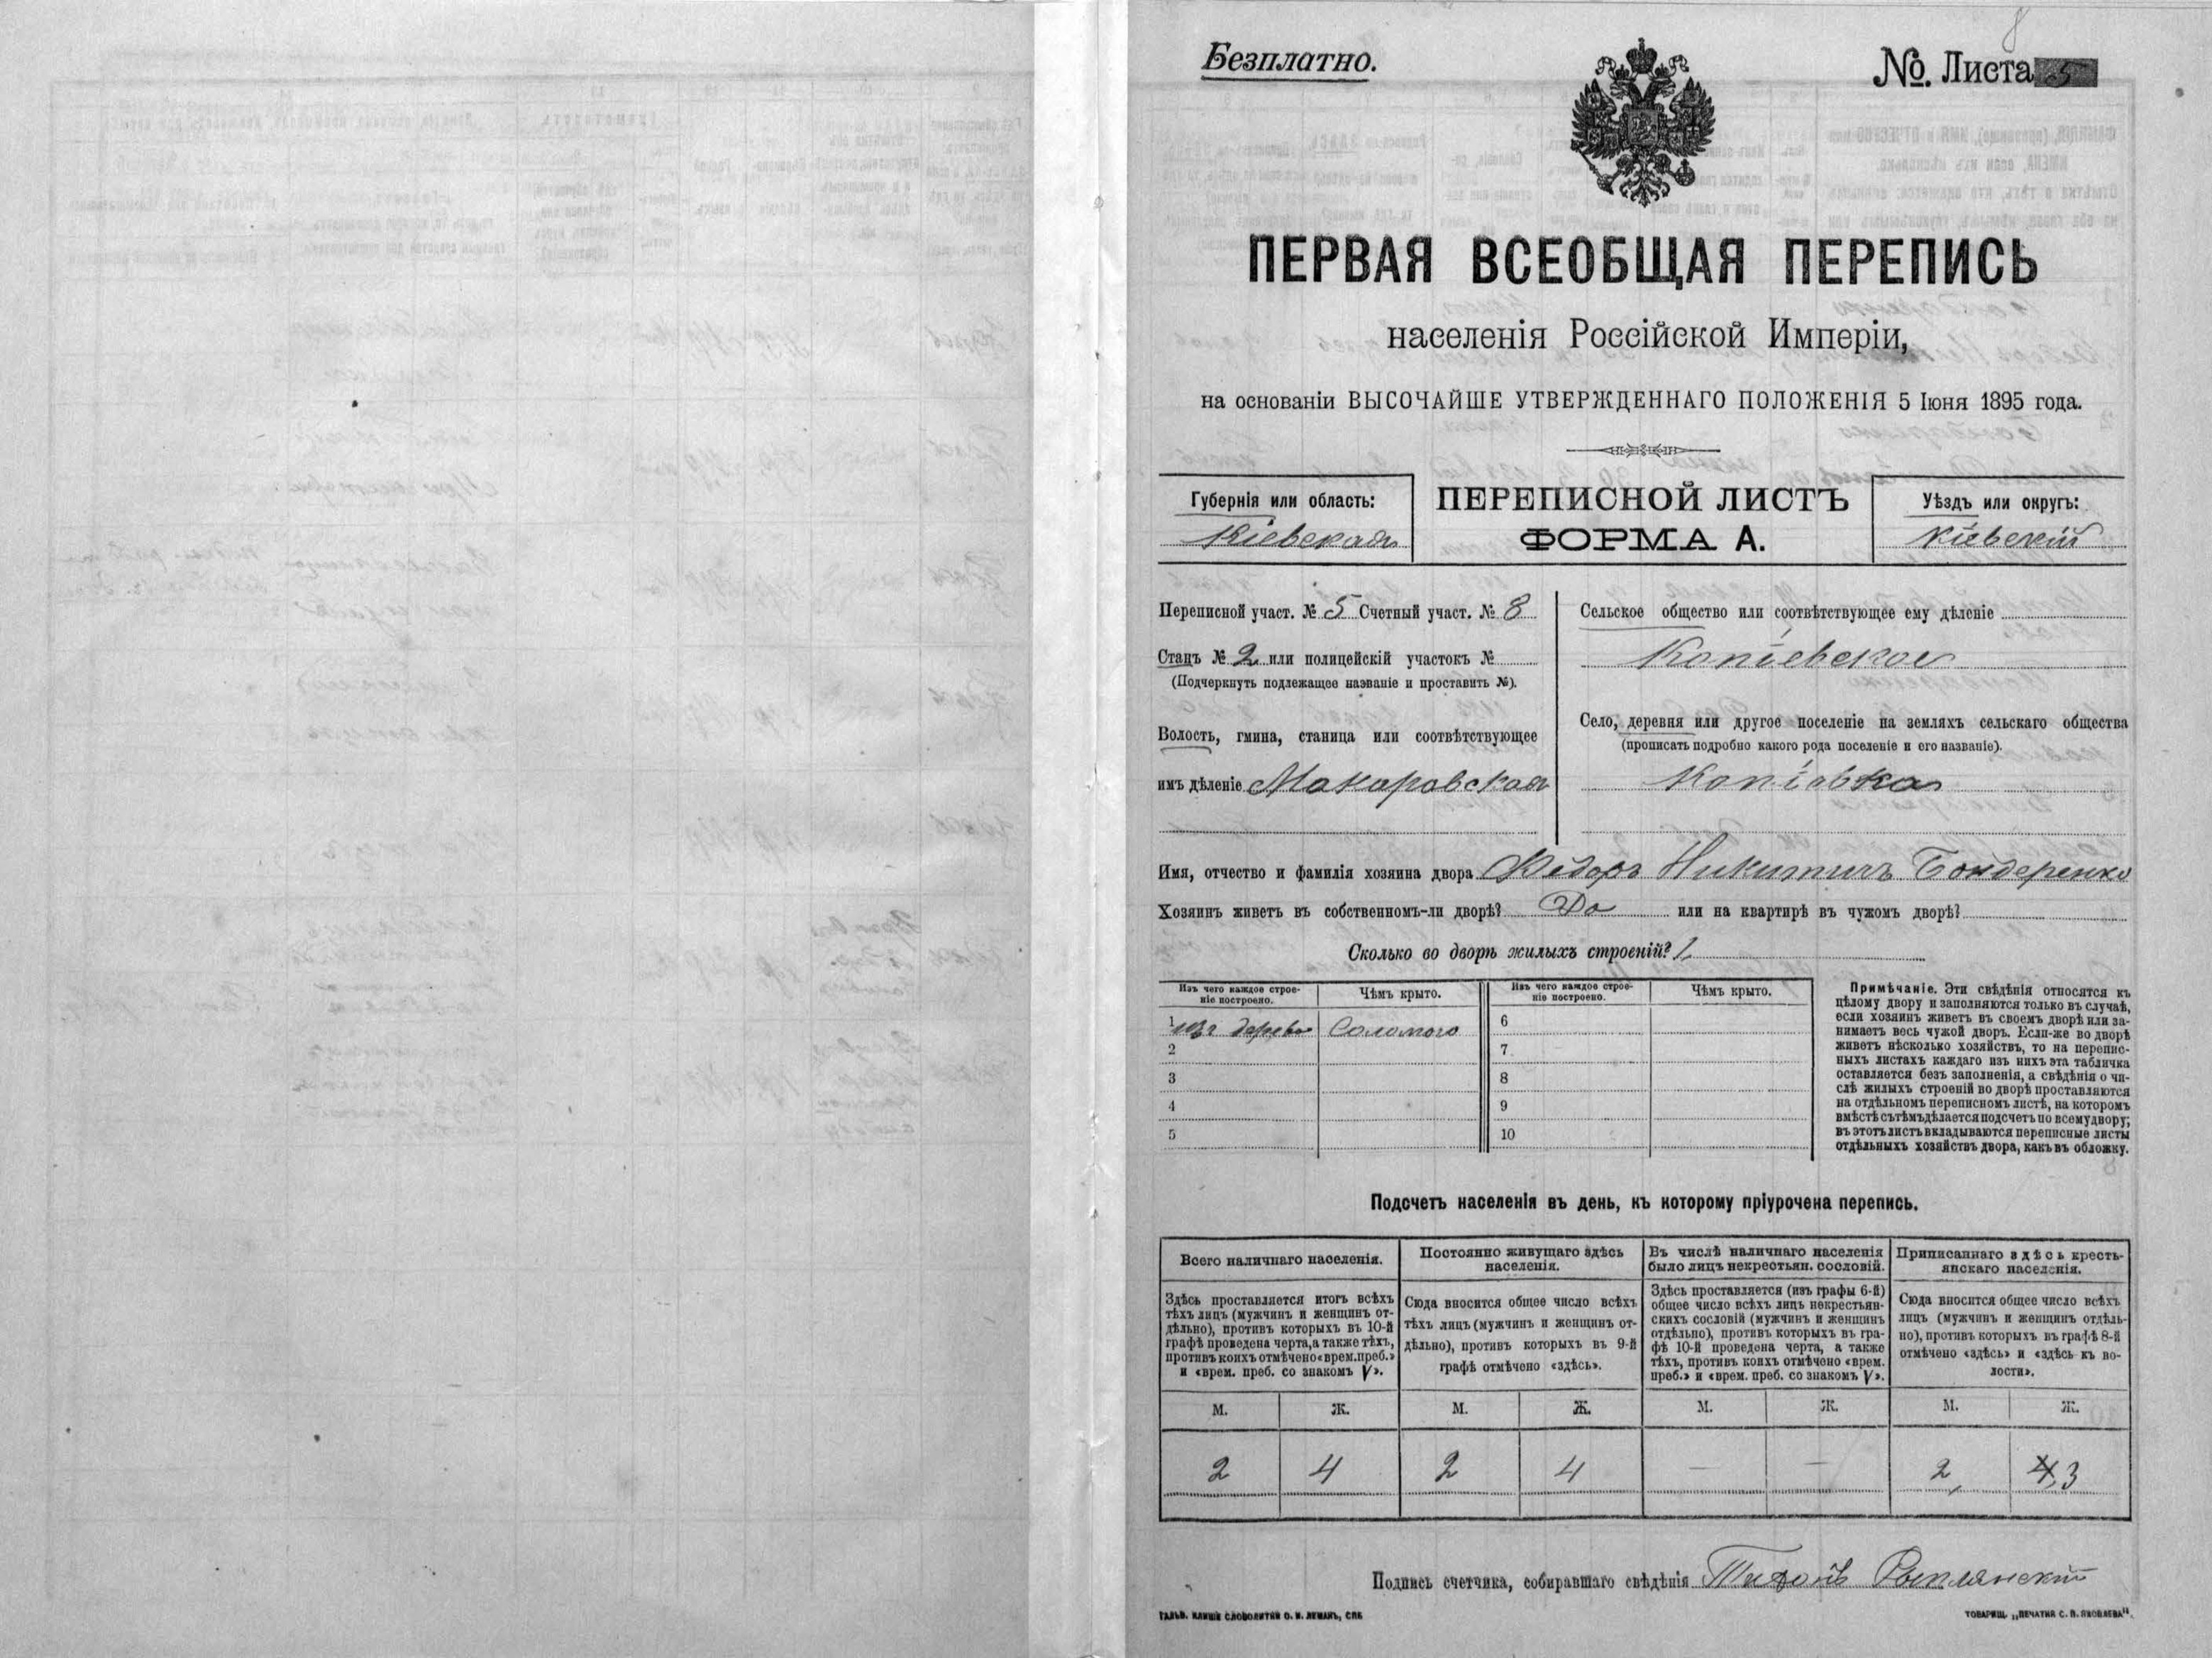 8
Безплатно.
№. Листа 5
ПЕРВАЯ ВСЕОБЩАЯ ПЕРЕПИСЬ
населенія Россійской Имперіи,
на основаніи ВЫСОЧАЙШЕ УТВЕРЖДЕННАГО ПОЛОЖЕНІЯ 5 Іюня 1895 года.
Губернія или область:
Кіевская
ПЕРЕПИСНОЙ ЛИСТЪ
ФОРМА А.
Уѣздъ или округъ:
Кіевскій
Переписной участ. № 5 Счетный участ. № 8
Станъ № 2 или полицейскій участокъ №
(Подчеркнуть подлежащее названіе и проставить №).
Волость, гмина, станица или соотвѣтствующее
имъ дѣленіе Макаровская
Сельское общество или соотвѣтствующее ему дѣленіе
Копіевское
Село, деревня или другое поселеніе на земляхъ сельскаго общества
(прописать подробно какого рода поселеніе и его названіе).
Копіевка
Имя, отчество и фамилія хозяина двора Федоръ Никитичъ Бондеренко
Хозяинъ живетъ въ собственномъ-ли дворѣ? Да или на квартирѣ въ чужомъ дворѣ?
Сколько во дворѣ жилыхъ строеній? 1
Изъ чего каждое строе-
ніе построено.
Чѣмъ крыто.
Изъ чего каждое строе-
ніе построено.
Чѣмъ крыто.
1 изъ дерева Соломою 6
2 7
3 8
4 9
5 10
Примѣчаніе. Эти свѣдѣнія относятся къ
цѣлому двору и заполняются только въ случаѣ,
если хозяинъ живетъ въ своемъ дворѣ или за-
нимаетъ весь чужой дворъ. Если-же во дворѣ
живетъ нѣсколько хозяйствъ, то на перепис-
ныхъ листахъ каждаго изъ нихъ эта табличка
оставляется безъ заполненія, а свѣдѣнія о чи-
слѣ жилыхъ строеній во дворѣ проставляются
на отдѣльномъ переписномъ листѣ, на которомъ
вмѣстѣ съ тѣмъ дѣлается подсчетъ по всему двору;
въ этотъ листъ вкладываются переписные листы
отдѣльныхъ хозяйствъ двора, какъ въ обложку.
Подсчетъ населенія въ день, къ которому пріурочена перепись.
Всего наличнаго населенія.
Здѣсь проставляется итогъ всѣхъ
тѣхъ лицъ (мужчинъ и женщинъ от-
дѣльно), противъ которыхъ въ 10-й
графѣ проведена черта, а также тѣхъ,
противъ коихъ отмѣчено «врем. преб.»
и «врем. преб. со знакомъ V».
Постоянно живущаго здѣсь
населенія.
Сюда вносится общее число всѣхъ
тѣхъ лицъ (мужчинъ и женщинъ от-
дѣльно), противъ которыхъ въ 9-й
графѣ отмѣчено «здѣсь».
Въ числѣ наличнаго населенія
было лицъ некрестьян. сословій.
Здѣсь проставляется (изъ графы 6-й)
общее число всѣхъ лицъ некрестьян-
скихъ сословій (мужчинъ и женщинъ
отдѣльно), противъ которыхъ въ гра-
фѣ 10-й проведена черта, а также
тѣхъ, противъ коихъ отмѣчено «врем.
преб.» и «врем. преб. со знакомъ V».
Приписаннаго здѣсь кресть-
янскаго населенія.
Сюда вносится общее число всѣхъ
лицъ (мужчинъ и женщинъ отдѣль-
но), противъ которыхъ въ графѣ 8-й
отмѣчено «здѣсь» и «здѣсь къ во-
лости».
М. Ж. М. Ж. М. Ж. М. Ж.
2 4 2 4 — — 2 4 3
Подпись счетчика, собиравшаго свѣдѣнія Тихонъ
ГАЛЬВ. КЛИШЕ СЛОВОЛИТНИ О. И. ЛЕМАНЪ, СПБ
ТОВАРИЩ. „ПЕЧАТНЯ С. П. ЯКОВЛЕВА".